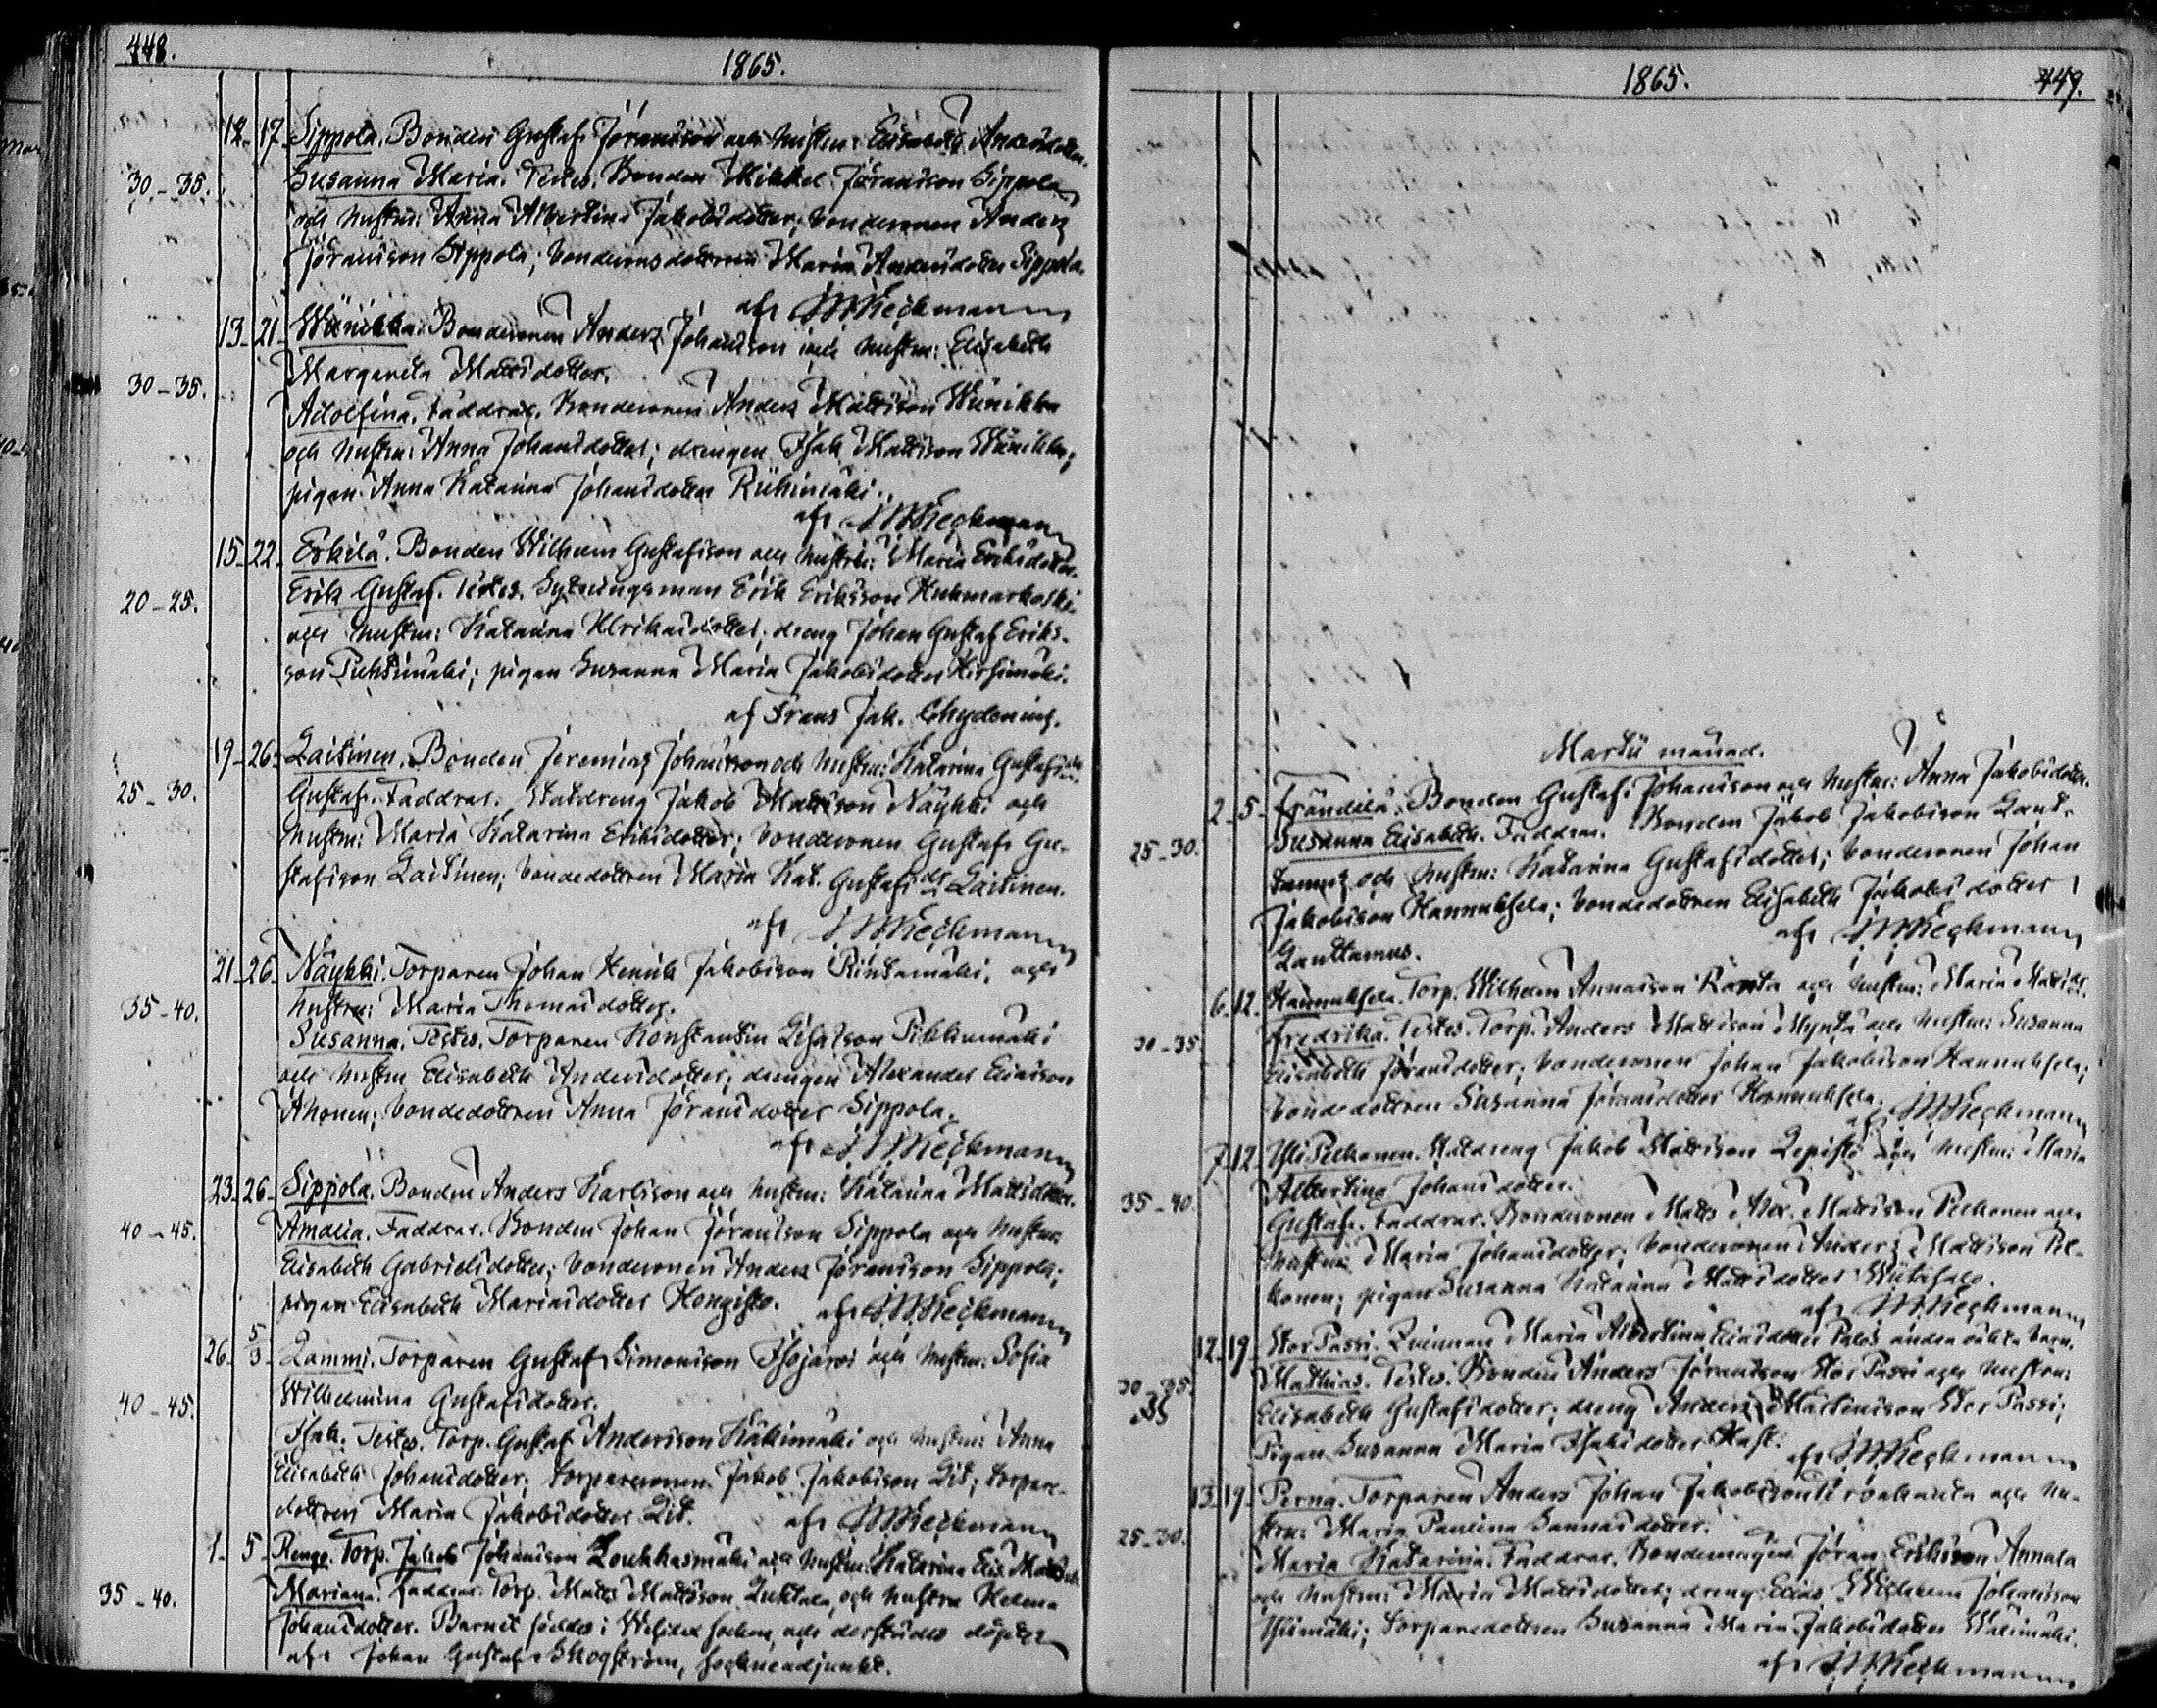 448.
1865.
12. 17. Sippola. Bonden Gustaf Jöransson och hustru: Elisabeth Andersdotter.
30-35. Susanna Maria. Testes. Bonden Mikkel Jöransson Sippola
och hustru: Anna Albertina Jakobsdotter; bondesonen Anders
Jöransson Sippola; bondesonsdottren Maria Andersdotter Sippola.
af
13. 21. Bondesonen Anders Johansson och hustru: Elisabeth
Margareta Mattsdotter.
30-35. Adolfina. Faddrar. Bondesonen Anders Mattsson
och hustru: Anna Johansdotter; drengen Isak Mattsson
pigan Anna Katarina Johansdotter
af
15. 22. Erkilä. Bonden Wilhelm Gustafsson och hustru: Maria Eriksdotter.
20-25. Erik Gustaf. Testes. Sytningsman Erik Eriksson Huhmarkoski
och hustru: Katarina Ulrikasdotter; dreng Johan Gustaf Eriks-
son; pigan Susanna Maria Jakobsdotter Hirsimäki.
af Frans Jak. Chydenius.
19. 26. Laitinen. Bonden Jeremias Johansson och hustru: Katarina Gustafsdr.
25-30. Gustaf. Faddrar. Statdreng Jakob Mattsson Näykki och
hustru: Maria Katarina Eriksdotter; bondesonen Gustaf Gu-
stafsson Laitinen; bondedottren Maria Kat. Gustafsdr Laitinen.
af
21. 26. Näykki. Torparen Johan Henrik Jakobsson Rintamäki, och
hustru: Maria Thomasdotter.
35-40. Susanna. Testes. Torparen Konstantin
och hustru Elisabeth Andersdotter; drengen Alexander Eliasson
Ahonen; bondedottren Anna Jöransdotter Sippola.
af
23. 26. Sippola. Bonden Anders Karlsson och hustru: Katarina Mattsdotter.
40-45. Amalia. Faddrar. Bonden Johan Jöransson Sippola och hustru
Elisabeth Gabrielsdotter; bondesonen Anders Jöransson Sippola;
pigan Elisabeth Mariasdotter Hongisto. af
26. 5/3 Lammi. Torparen Gustaf Simonsson Isojärvi och hustru: Sofia
Wilhelmina Gustafsdotter.
40-45. Isak. Testes. Torp. Gustaf Andersson Käkimäki och hustru: Anna
Elisabeth Johansdotter; torparesonen Jakob Jakobsson; torpare-
dottren Maria Jakobsdotter. af
1. 5. Renge. Torp. Jakob Johansson Loukkasmäki och hustru: Katarina Elis. Mattsdr.
35-40. Mariana. Faddrar. Torp. Matts Mattsson, och hustru Helena
Johansdotter. Barnet föddes i socken, och derstädes döptes
af Johan Gustaf Skogström, sockneadjunkt.
1865.
449.
Martii månad.
2. 5. Frändilä. Bonden Gustaf Johansson och hustru: Anna Jakobsdotter.
25-30. Susanna Elisabeth. Faddrar. Bonden Jakob Jakobsson Laut-
tamus och hustru: Katarina Gustafsdotter; bondesonen Johan
Jakobsson Hannuksela; bondedottren Elisabeth Jakobsdotter
Lauttamus. af
6. 12. Hannuksela. Torp. Wilhelm Annasson Ranta och hustru: Maria Mattsdr.
30-35. Fredrika. Testes. Torp. Anders Mattsson och hustru: Susanna
Elisabeth Jöransdotter; bondesonen Johan Jakobsson Hannuksela;
bondedottren Susanna Jöransdotter Hannuksela. af
7. 12. Yli Pelkonen. Statdreng Jakob Mattsson Lepistö och hustru: Maria
Albertina Johansdotter.
35-40. Gustaf. Faddrar. Bondesonen Matts Alex. Mattsson Pelkonen och
hustru: Maria Johansdotter; bondesonen Anders Mattsson Pel-
konen; pigan Susanna Katarina Mattsdotter
af
12. 19. Stor Passi. Qvinnan Maria Albertina Eliasdotter
30-35. Mathias. Testes. Bonden Anders Jöransson Stor Passi och hustru:
35
Elisabeth Gustafsdotter; dreng Anders Mårtensson Stor Passi;
Pigan Susanna Maria Isaksdotter Hast. af
13. 19. Perna. Torparen Anders Johan Jakobsson och hu-
stru: Maria Paulina Sannasdotter.
25-30. Maria Katarina. Faddrar. Bondemågen Jöran Eriksson Annala
och hustru: Maria Mattsdotter; dreng Elias Wilhelm Johansson
; torparedottren Susanna Maria Jakobsdotter
af